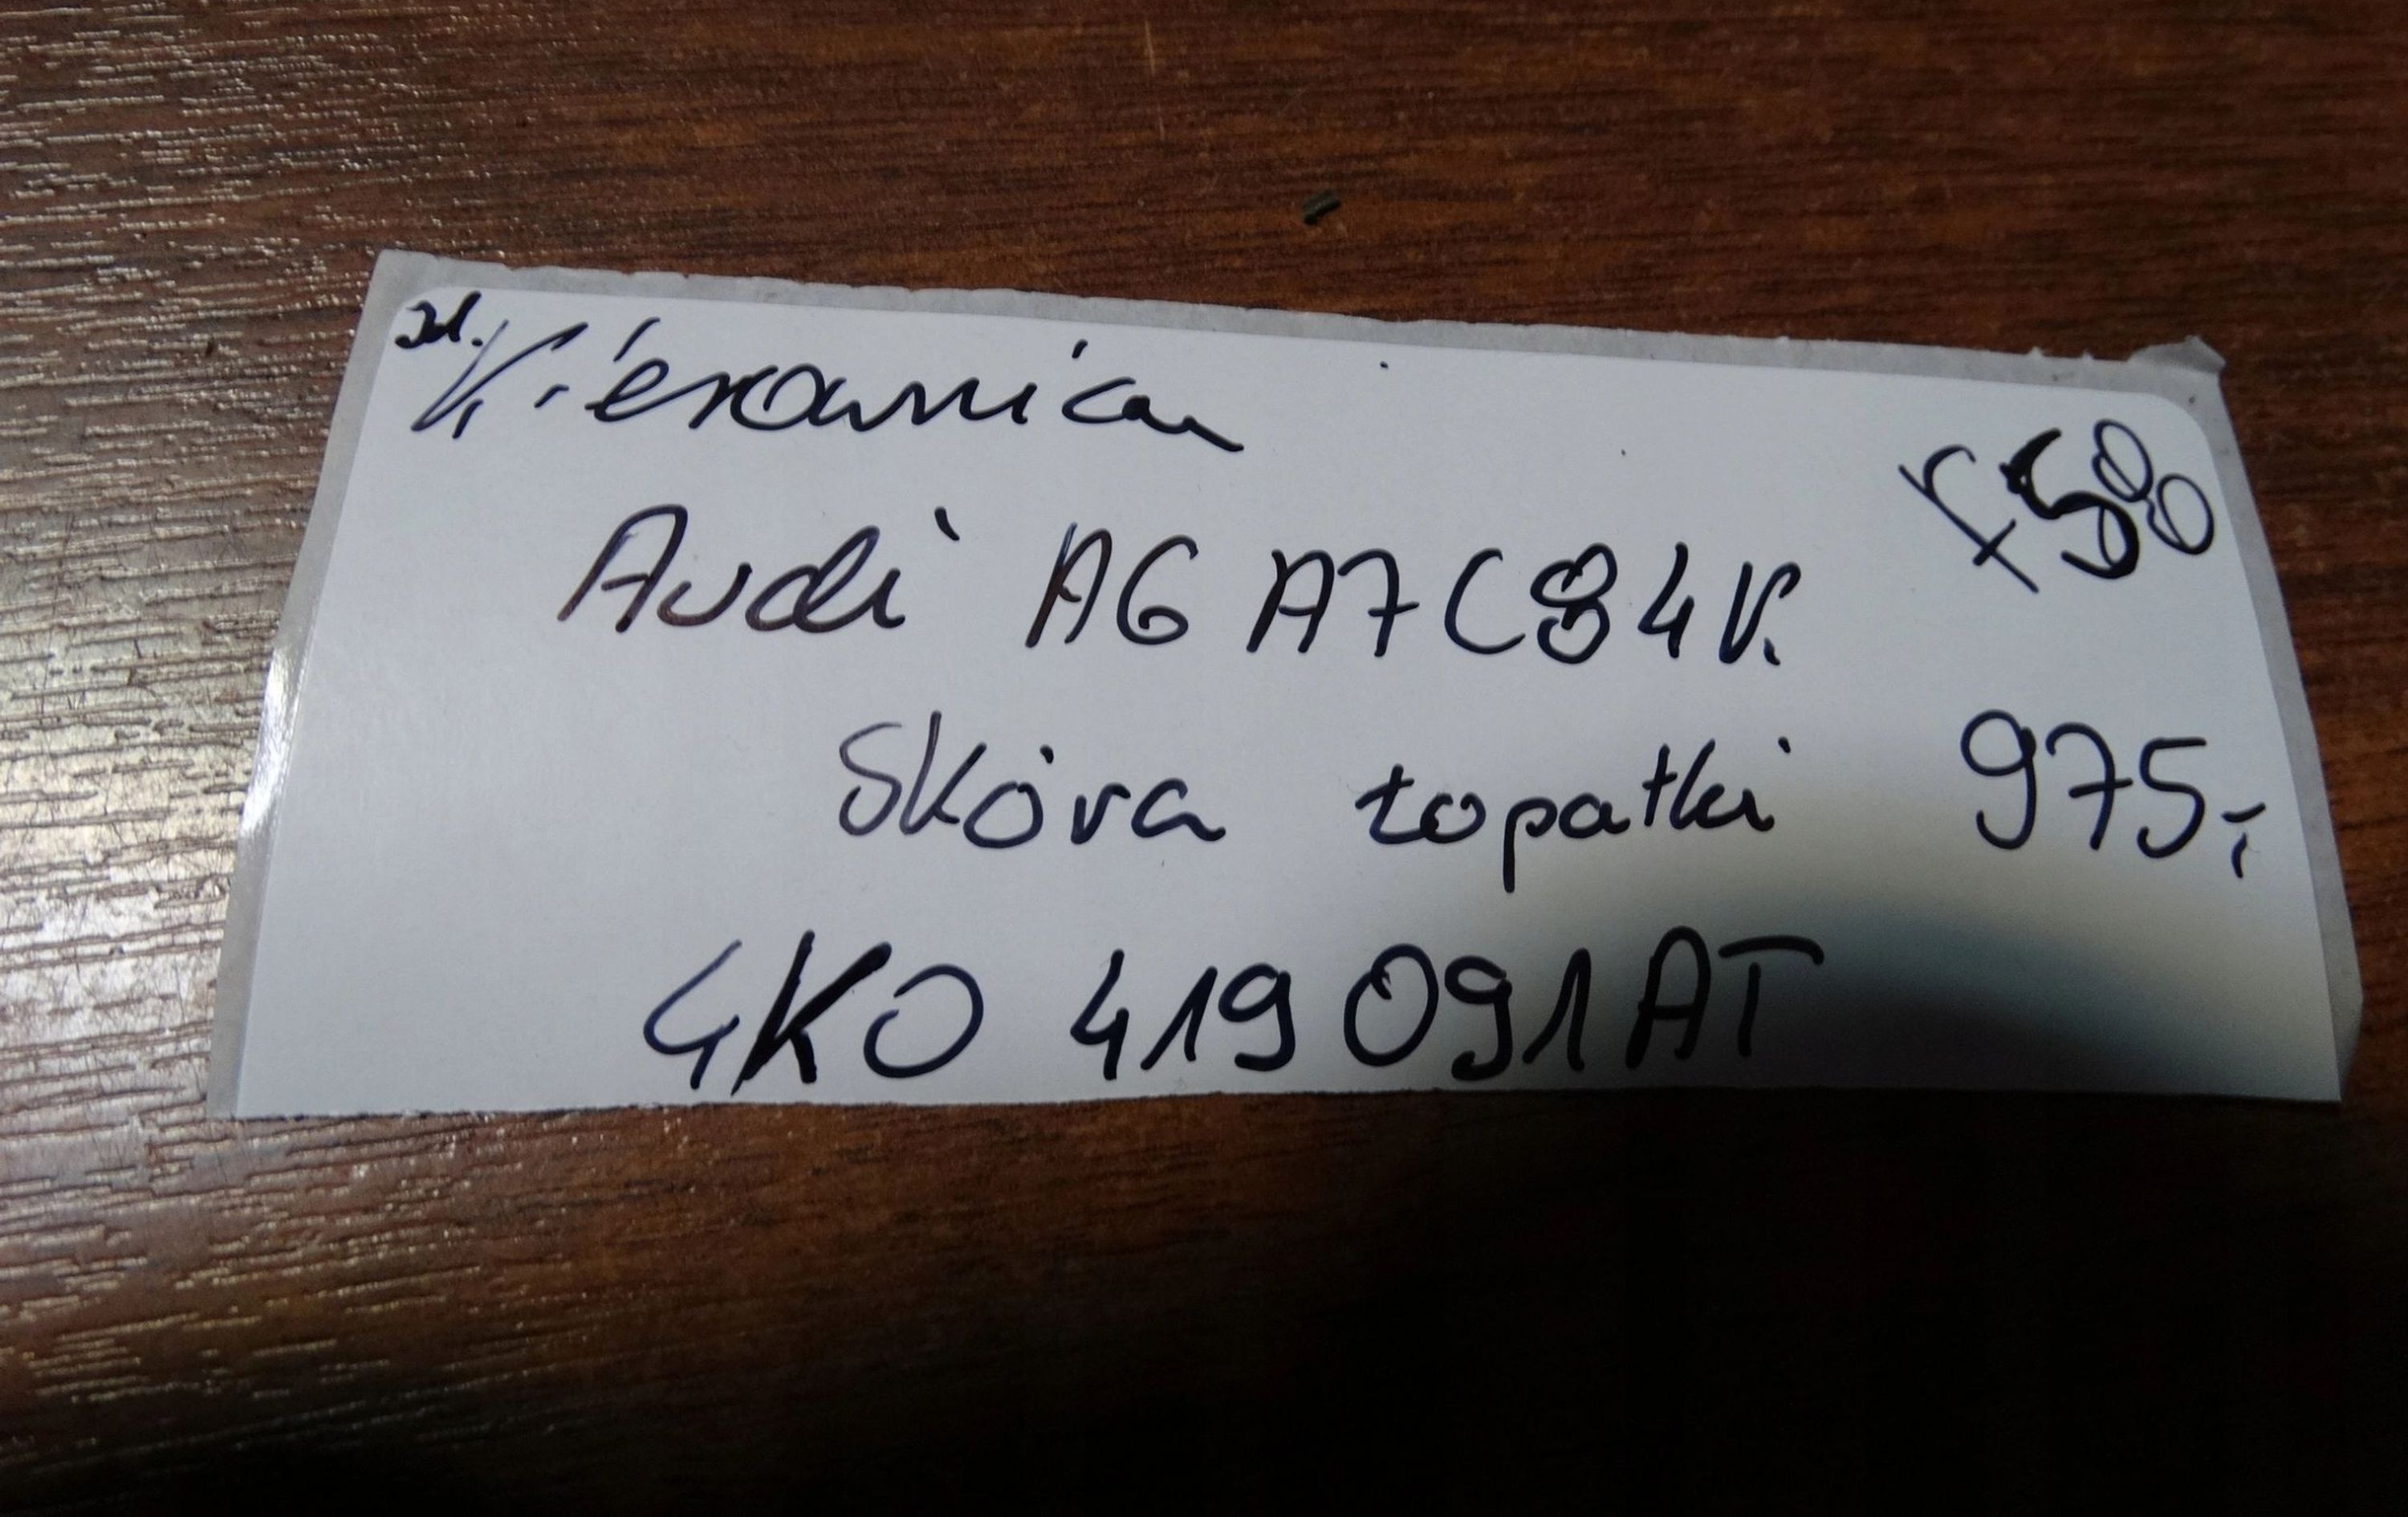 Kierownica
Audi A6 A7 C8 4K
Skóra łopatki 975,-
4K0 419 091 AT